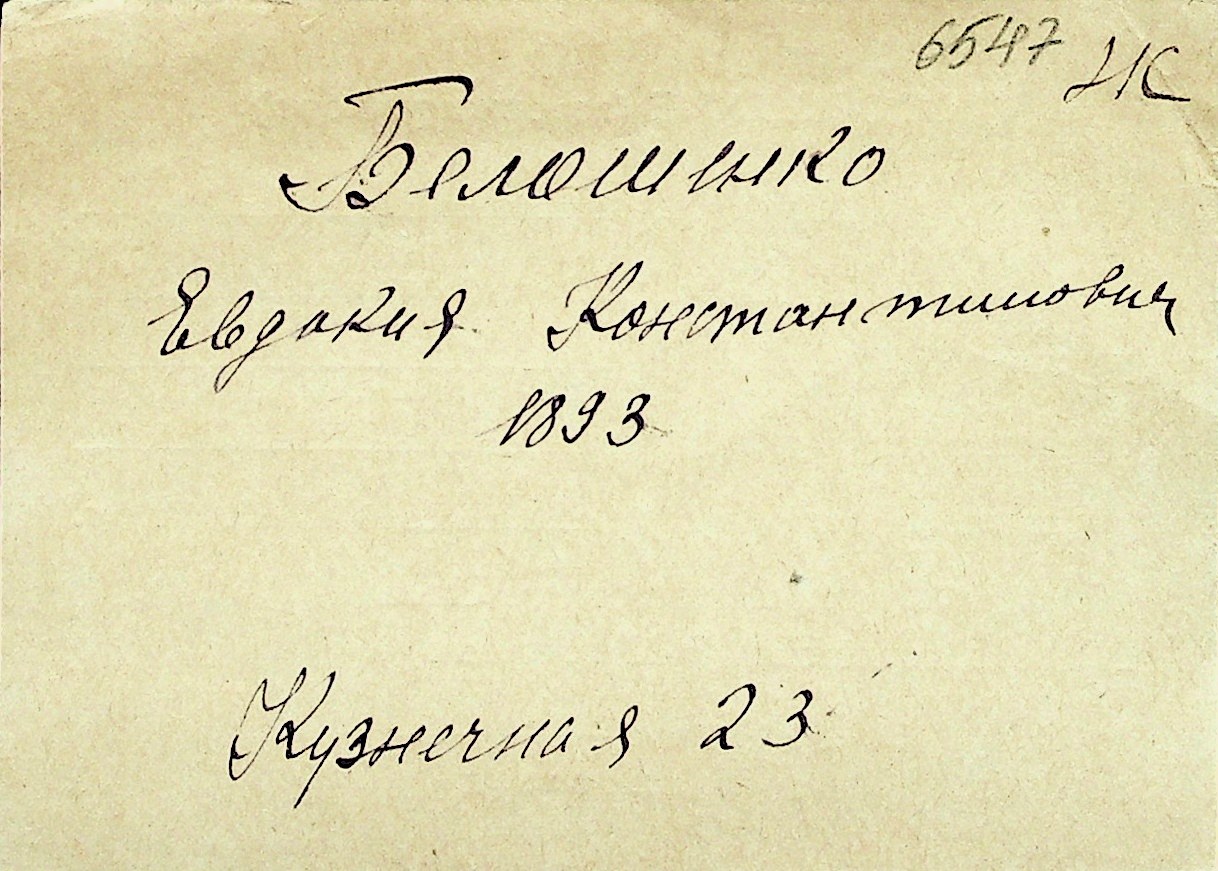 6547 НК
Белошенко
Евдокия Константинович
1893
Кузнечная 23